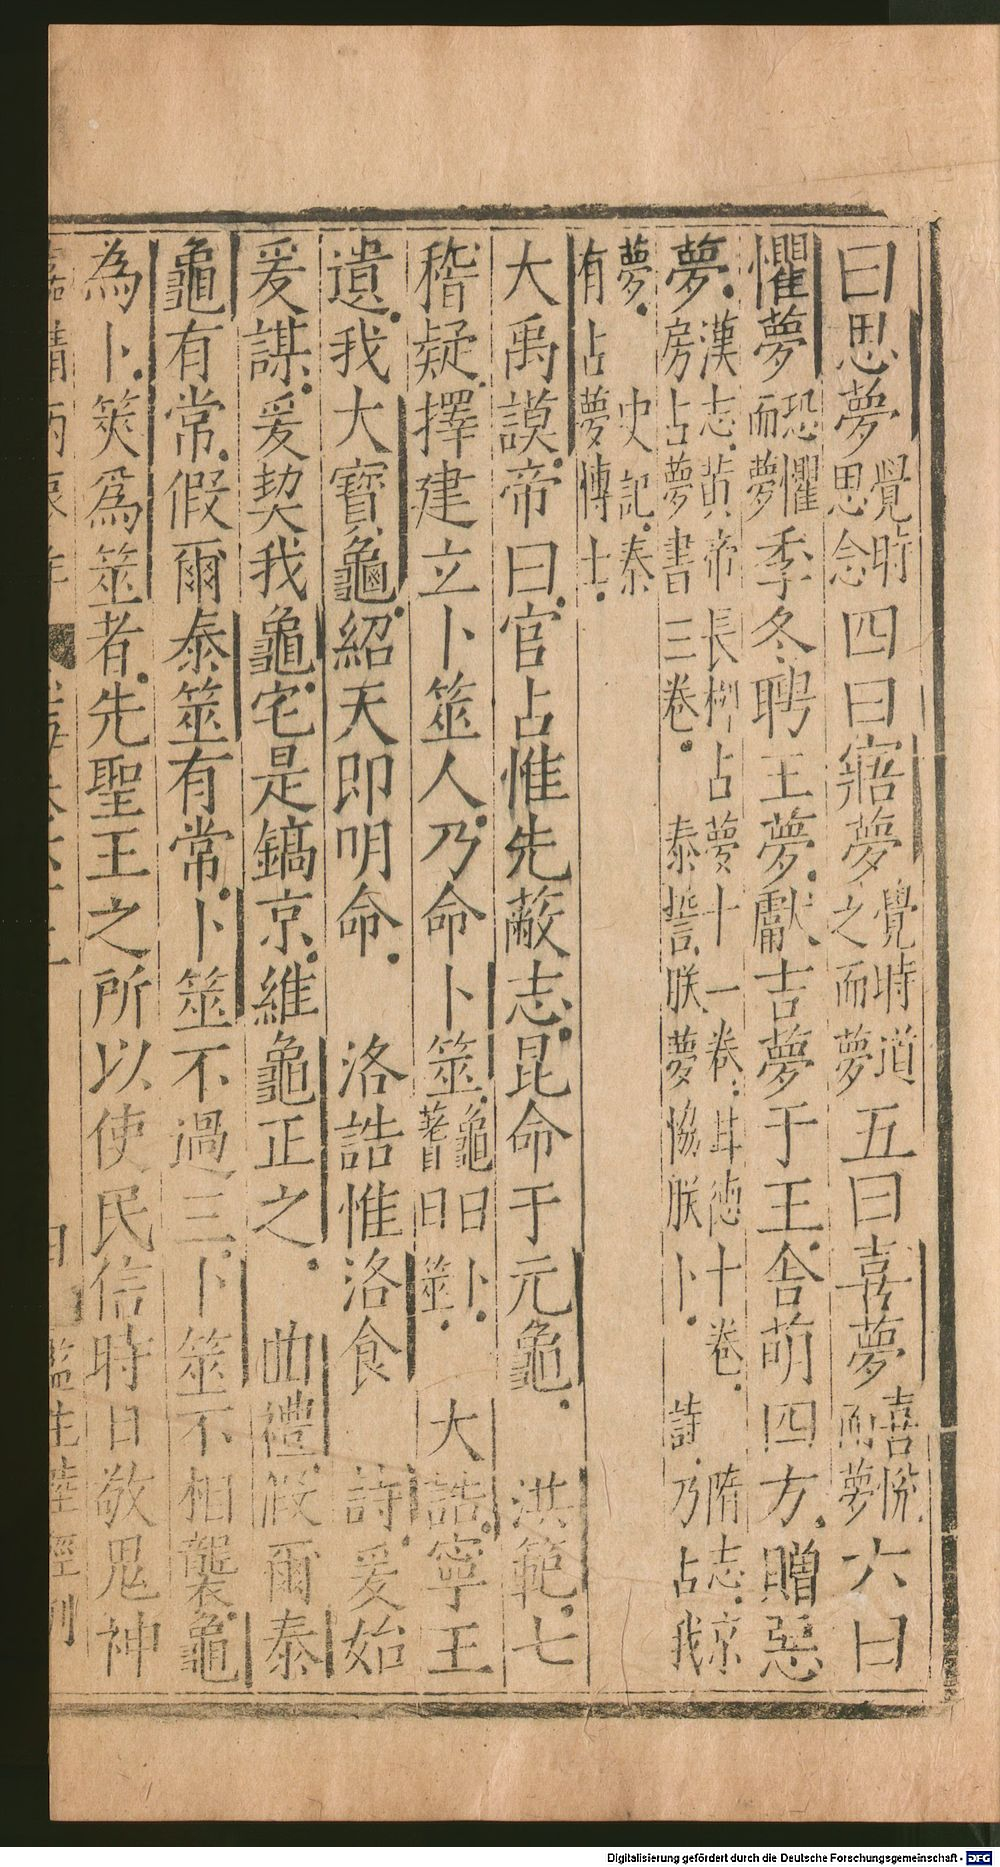 曰思夢覺時思念四曰寤夢覺時道之而夢五曰喜夢喜悅而夢六曰
懼夢恐懼而夢季冬聘王夢獻吉夢于王舍萌四方贈惡
夢漢志黃帝長柳占夢十一卷甘德十卷隋志京房占夢書三卷泰誓朕夢協朕卜詩乃占我
夢史記秦有占夢博士
大禹謨帝曰官占惟先蔽志昆命于元龜洪範七
稽疑擇建立卜筮人乃命卜筮龜曰卜蓍曰筮大誥寧王
遺我大寶龜紹天即明命洛誥惟洛食詩爰始
爰謀爰契我龜宅是鎬京維龜正之曲禮假爾泰
龜有常假爾泰筮有常卜筮不過三卜筮不相襲龜
為卜筴為筮者先聖王之所以使民信時日敬鬼神
Digitalisierung gefördert durch die Deutsche Forschungsgemeinschaft - DFG